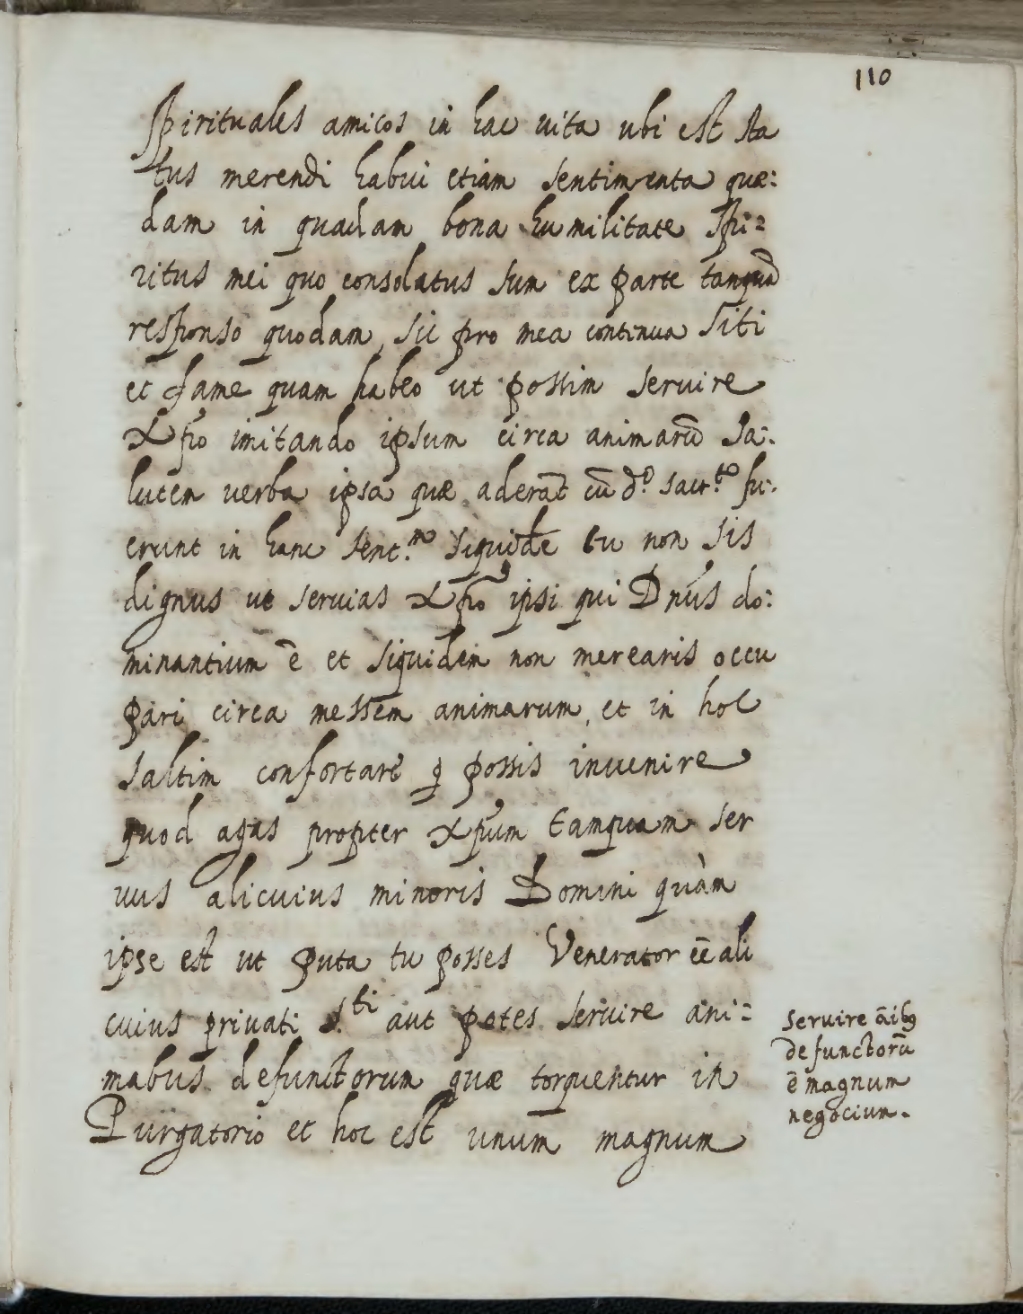 110
Spirituales amicos in hac uita ubi est sta
tus merendi habui etiam sentimenta quæ:
dam in quadam bona humilitate spi=
ritus mei quo consolatus sum ex parte tanquā
responso quodam, sic pro mea continua siti
et fame quam habeo ut possim seruire
Xp̃o imitando ipsum circa animarū sa:
lutem uerba ipsa quæ aderāt cū d.º sacr.to fu:
erunt in hanc sent.m siquidē tu non sis
dignus ut seruias Xp̃o ipsi qui Dñus do:
minantium ē et siquidem non merearis occu
pari circa messem animarum, et in hoc
saltim confortarē q̨ possis inuenire
quod agas propter Xp̃um tamquam ser
uus alicuius minoris Domini quàm
ipse est ut puta tu posses Venerator eē ali
cuius priuati S.ti aut potes seruire ani=
mabus defunctorum quæ torquentur in
Purgatorio et hoc est unum magnum
Seruire āib9
defunctorū
ē magnum
negocium.